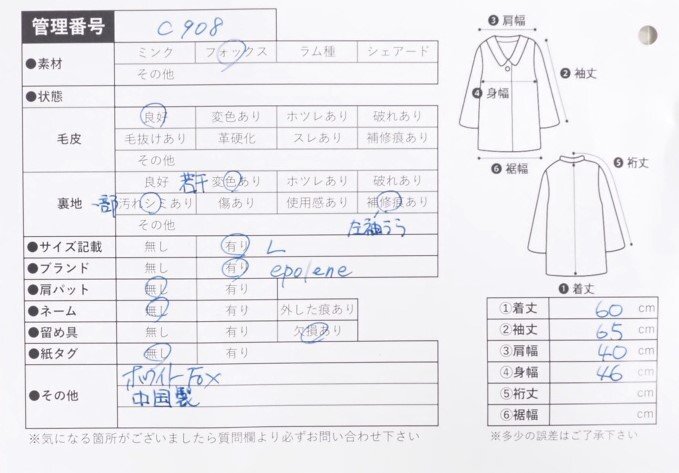 管理番号 C908
●素材 ミンク フォックス ラム種 シェアード
その他
●状態
毛皮 良好 変色あり ホツレあり 破れあり
毛抜けあり 革硬化 スレあり 補修痕あり
その他
裏地 良好 若干 変色あり ホツレあり 破れあり
一部 汚れシミあり 傷あり 使用感あり 補修痕あり
その他 左袖うら
●サイズ記載 無し 有り L
●ブランド 無し 有り epolene
●肩パット 無し 有り
●ネーム 無し 有り 外した痕あり
●留め具 無し 有り 欠損あり
●紙タグ 無し 有り
●その他 ホワイトFox
中国製
※気になる箇所がございましたら質問欄より必ずお問い合わせ下さい
❸肩幅
❷袖丈
❹身幅
❻裾幅
❺裄丈
❶着丈
①着丈 60 cm
②袖丈 65 cm
③肩幅 40 cm
④身幅 46 cm
⑤裄丈 cm
⑥裾幅 cm
※多少の誤差はご了承下さい